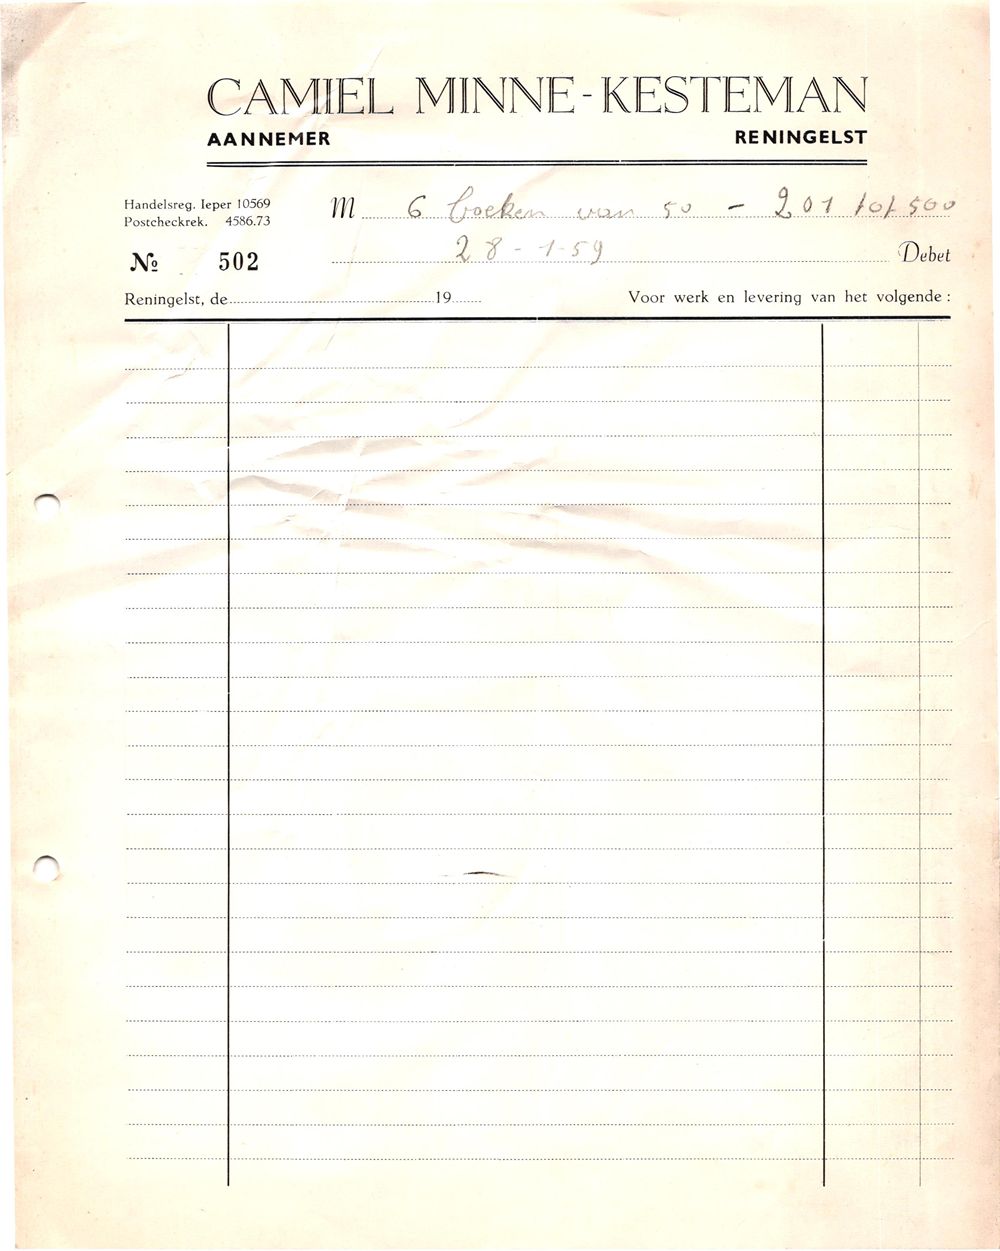 CAMIEL MINNE-KESTEMAN
AANNEMER RENINGELST
Handelsreg. Ieper 10569
Postcheckrek. 4586.73
M 6 boeken van 50 - 201 tot 500
28-1-59
Debet
No 502
Reningelst, de 19
Voor werk en levering van het volgende :